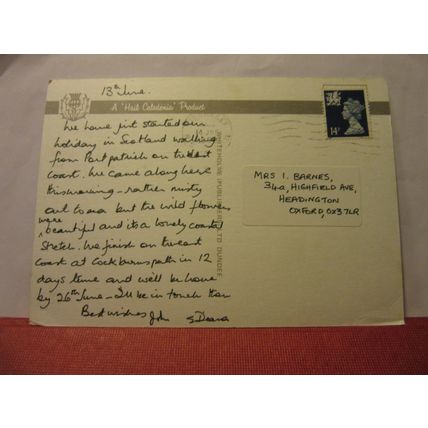 13th June.
A "Hail Caledonia" Product
We have just started our
holiday in Scotland walking
from Portpatrick on the West
coast. We came along here
this morning - rather misty
out to sea but the wild flowers
were
beautiful and its a lovely coastal
stretch. We finish on the east
coast at Cockburnspath in 12
days time and will be home
by 26th June - I'll be in touch then
Best wishes John & Deana
14P
MRS I. BARNES,
34a, HIGHFIELD AVE,
HEADINGTON
OXFORD, OX3 7LR
WHITEHOLME (PUBLISHERS) LTD DUNDEE